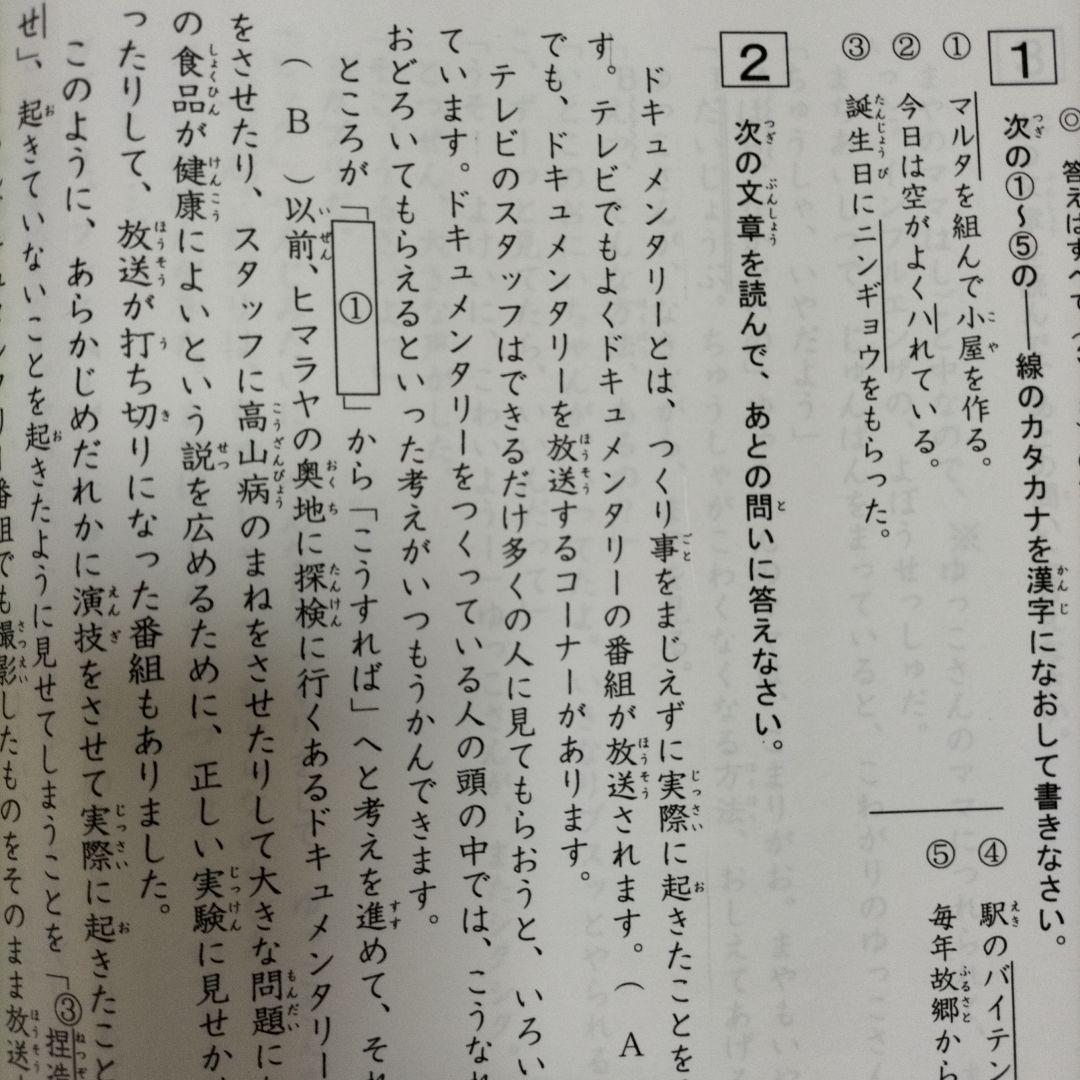 ◎ 答えはすべて
1 次の①〜⑤の――線のカタカナを漢字になおして書きなさい。
① マルタを組んで小屋を作る。
② 今日は空がよくハれている。
③ 誕生日にニンギョウをもらった。
④ 駅のバイテン
⑤ 毎年故郷から
2 次の文章を読んで、あとの問いに答えなさい。
ドキュメンタリーとは、つくり事をまじえずに実際に起きたことを
す。テレビでもよくドキュメンタリーの番組が放送されます。( A
でも、ドキュメンタリーを放送するコーナーがあります。
テレビのスタッフはできるだけ多くの人に見てもらおうと、いろい
ています。ドキュメンタリーをつくっている人の頭の中では、こうなれ
おどろいてもらえるといった考えがいつもうかんできます。
ところが「 ① 」から「こうすれば」へと考えを進めて、それ
( B )以前、ヒマラヤの奥地に探検に行くあるドキュメンタリー
をさせたり、スタッフに高山病のまねをさせたりして大きな問題に
の食品が健康によいという説を広めるために、正しい実験に見せか
ったりして、放送が打ち切りになった番組もありました。
このように、あらかじめだれかに演技をさせて実際に起きたこと
せ」、起きていないことを起きたように見せてしまうことを「③捏造
番組でも撮影したものをそのまま放送